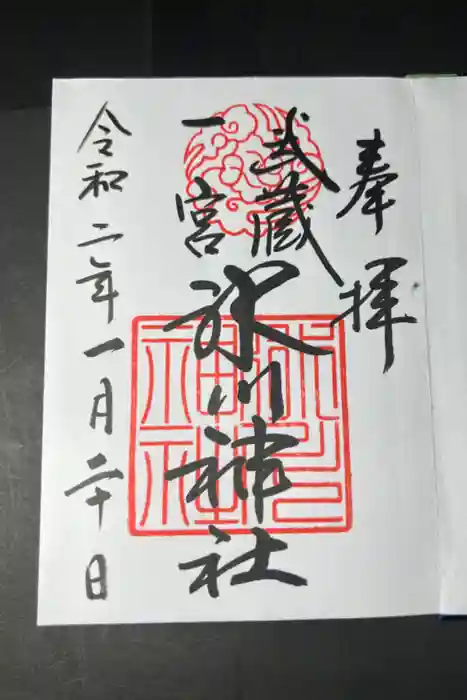 奉拝
武蔵
一宮
氷川神社
令和二年一月二十日
氷川神社